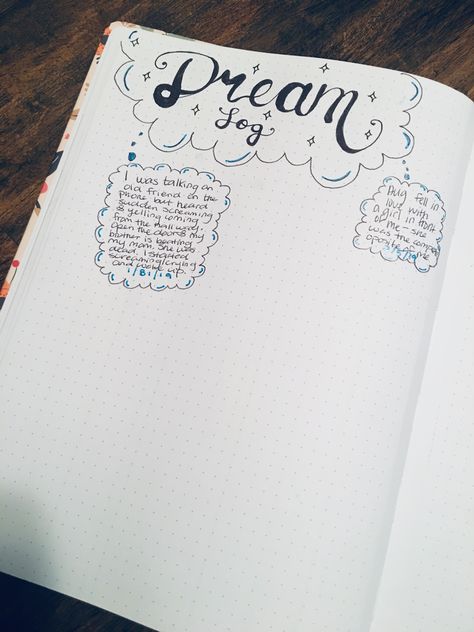 Dream
Log
I was talking an
old friend on the
phone but heard
sudden screaming
& yelling coming
from the hallway.
Open the door & my
brother is beating
my mom. She was
dead. I started
screaming/crying
and woke up.
1/31/19
fell in
love with
a girl in front
me - she
was the
me